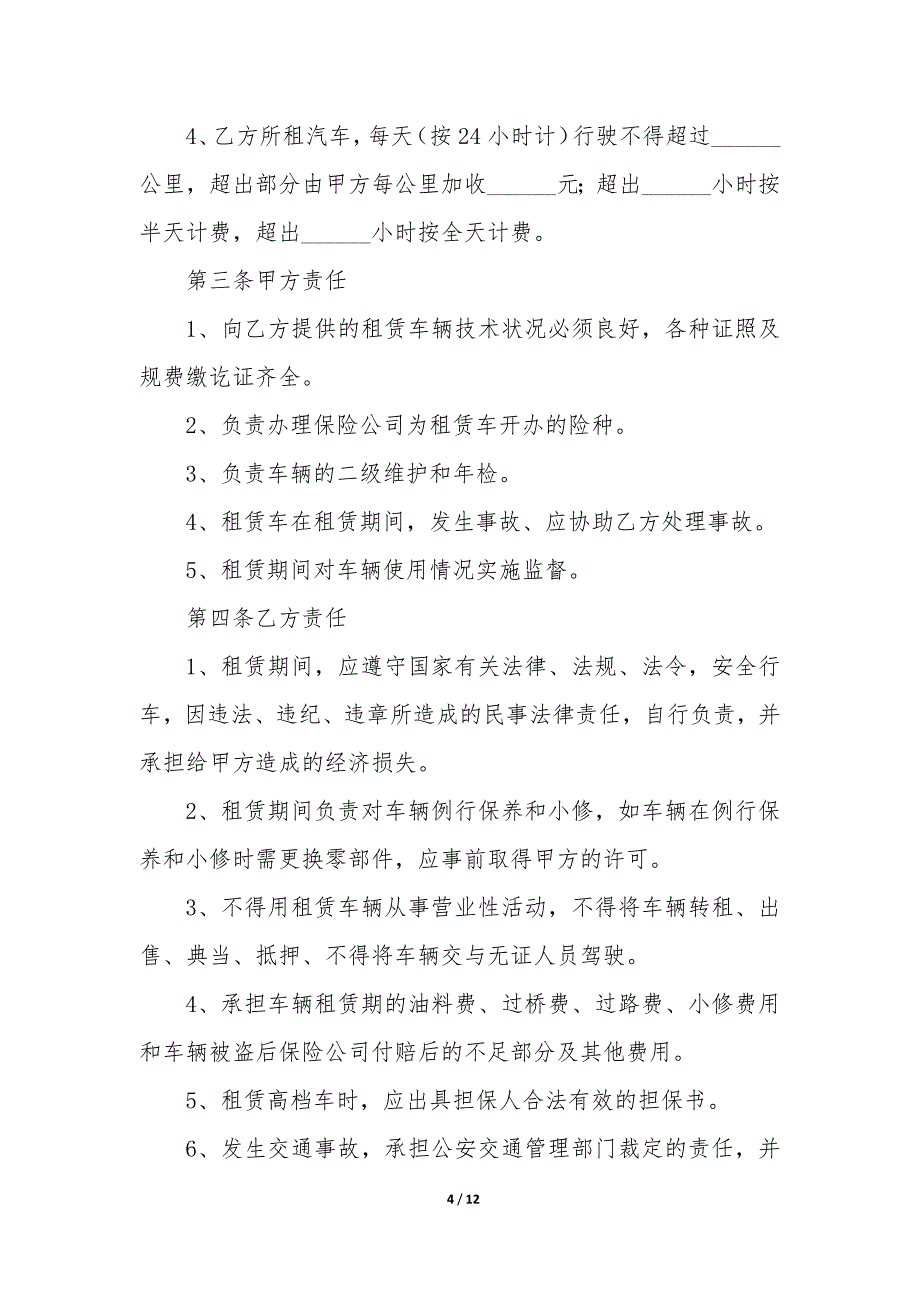 4、乙方所租汽车，每天（按 24 小时计）行驶不得超过______
公里，超出部分由甲方每公里加收______元；超出______小时按
半天计费，超出______小时按全天计费。
第三条甲方责任
1、向乙方提供的租赁车辆技术状况必须良好，各种证照及
规费缴讫证齐全。
2、负责办理保险公司为租赁车开办的险种。
3、负责车辆的二级维护和年检。
4、租赁车在租赁期间，发生事故、应协助乙方处理事故。
5、租赁期间对车辆使用情况实施监督。
第四条乙方责任
1、租赁期间，应遵守国家有关法律、法规、法令，安全行
车，因违法、违纪、违章所造成的民事法律责任，自行负责，并
承担给甲方造成的经济损失。
2、租赁期间负责对车辆例行保养和小修，如车辆在例行保
养和小修时需更换零部件，应事前取得甲方的许可。
3、不得用租赁车辆从事营业性活动，不得将车辆转租、出
售、典当、抵押、不得将车辆交与无证人员驾驶。
4、承担车辆租赁期的油料费、过桥费、过路费、小修费用
和车辆被盗后保险公司付赔后的不足部分及其他费用。
5、租赁高档车时，应出具担保人合法有效的担保书。
6、发生交通事故，承担公安交通管理部门裁定的责任，并
4 / 12